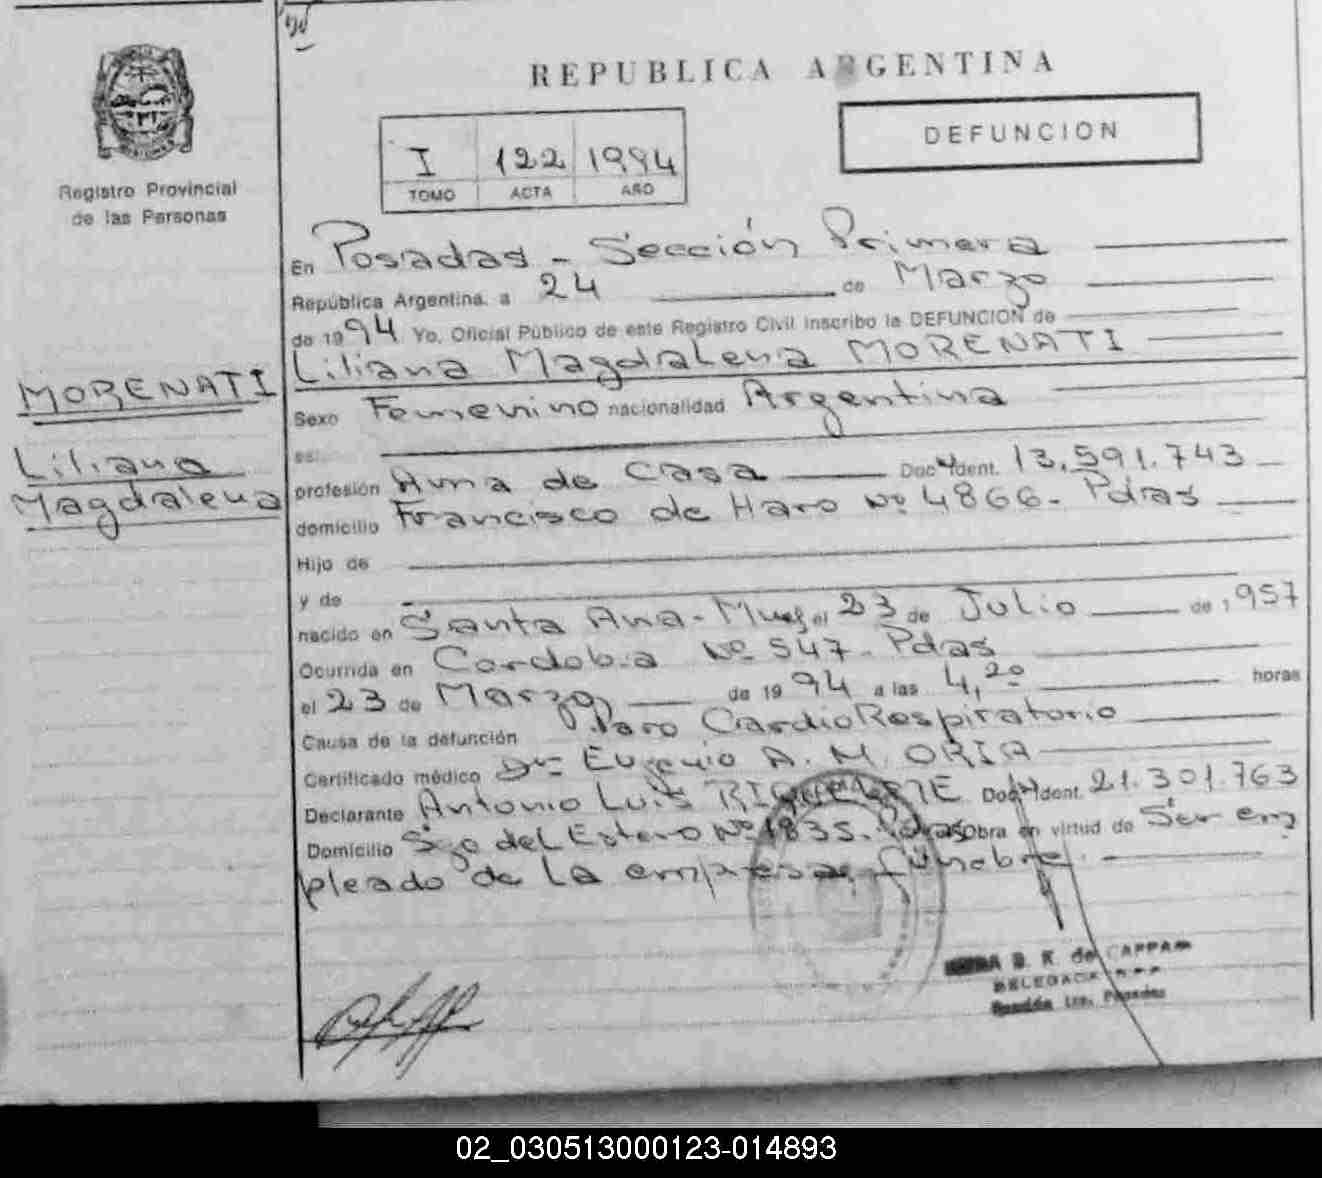 REPUBLICA ARGENTINA
DEFUNCION
I 122 1994
TOMO ACTA AÑO
Registro Provincial
de las Personas
MORENATI
Liliana
Magdalena
En Posadas - Sección Primera
República Argentina, a 24 de Marzo
de 1994 Yo, Oficial Público de este Registro Civil inscribo la DEFUNCION de
Liliana Magdalena MORENATI
Sexo Femenino nacionalidad Argentina
profesión Ama de Casa Doc. Ident. 13.591.743
domicilio Francisco de Haro Nº 4866- Pdas
Hijo de
y de
nacido en Santa Ana- el 23 de Julio de 1957
Ocurrida en Cordoba Nº 547- Pdas
el 23 de Marzo de 1994 a las 4,20 horas
Causa de la defunción Paro CardioRespiratorio
Certificado médico Dr. Eugenio A. M. ORIA
Declarante Antonio Luis Doc. Ident. 21.301.763
Domicilio Sgo del Estero Nº 1835. Pdas Obra en virtud de Ser em
pleado de la empresa fúnebre.
B. K. de CAPPA
02_030513000123-014893